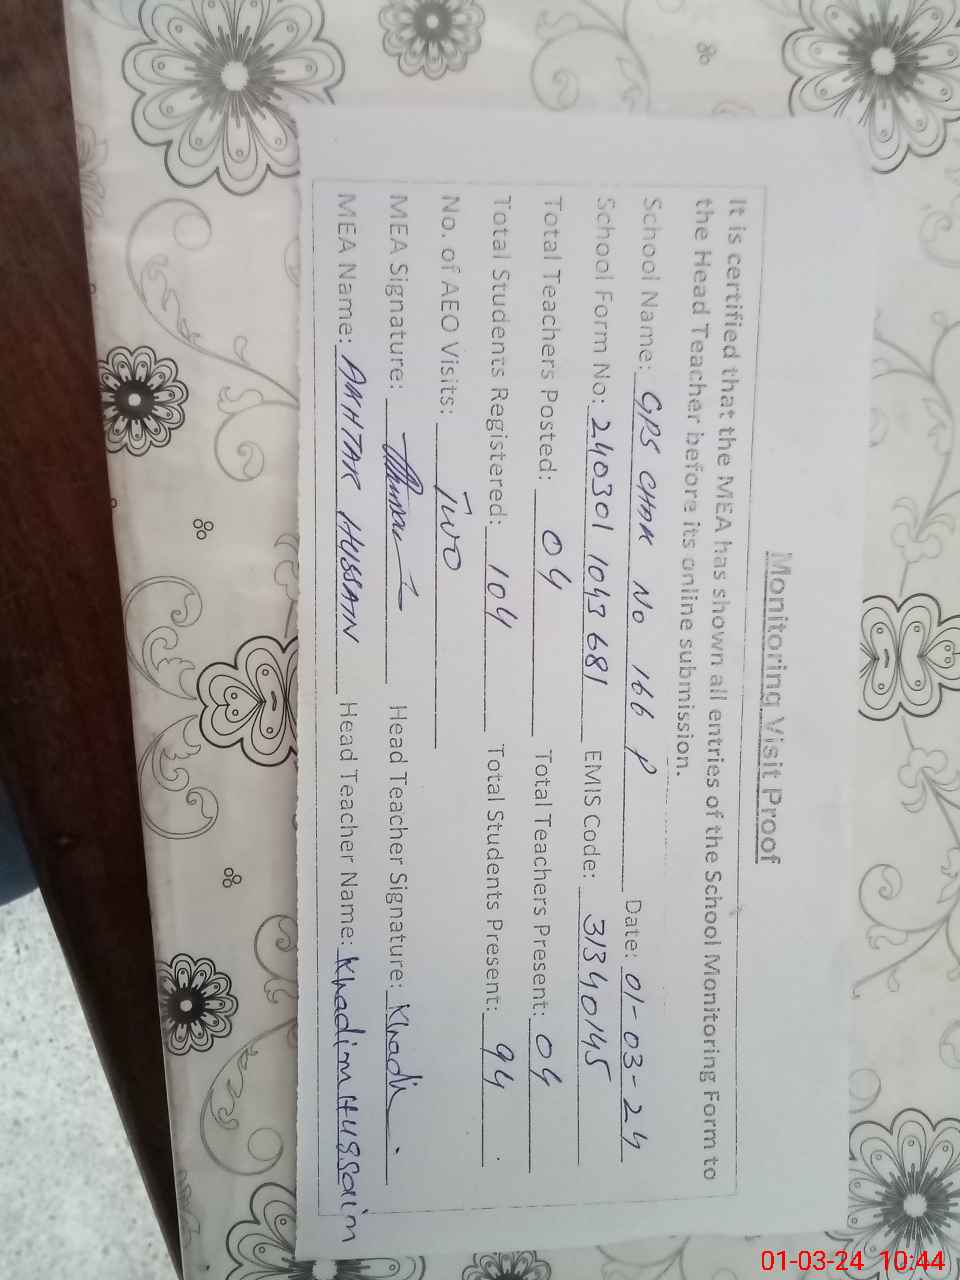 Monitoring Visit Proof
It is certified that the MEA has shown all entries of the School Monitoring Form to
the Head Teacher before its online submission.
School Name: GPS CHAK No 166 P Date: 01-03-24
School Form No: 240301 1043 681 EMIS Code: 31340145
Total Teachers Posted: 04 Total Teachers Present: 04
Total Students Registered: 104 Total Students Present: 94
No. of AEO Visits: Two
MEA Signature: Head Teacher Signature: Khadi
MEA Name: AKHTAR HUSSAIN Head Teacher Name: Khadim Hussain
01-03-24 10:44